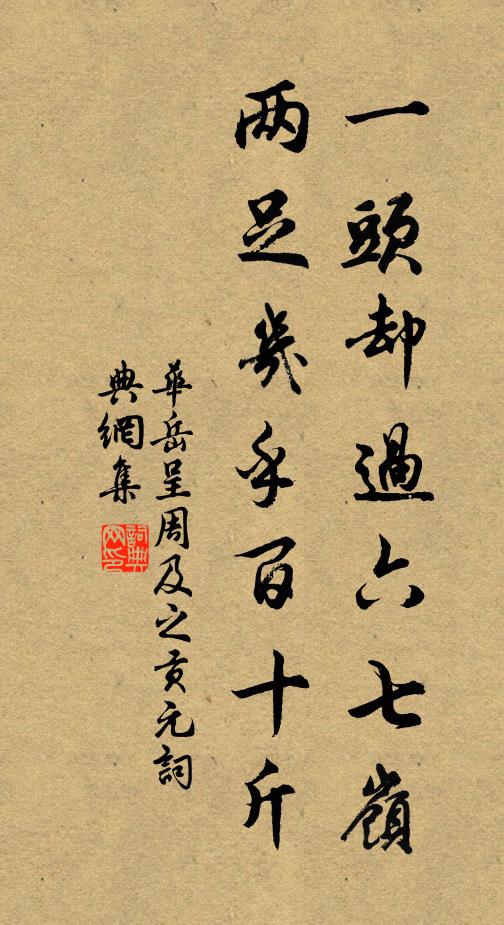 一頭却過六七嶺
两足幾乎百十斤
華岳呈周及之貢元詞
典網集
詞典网印